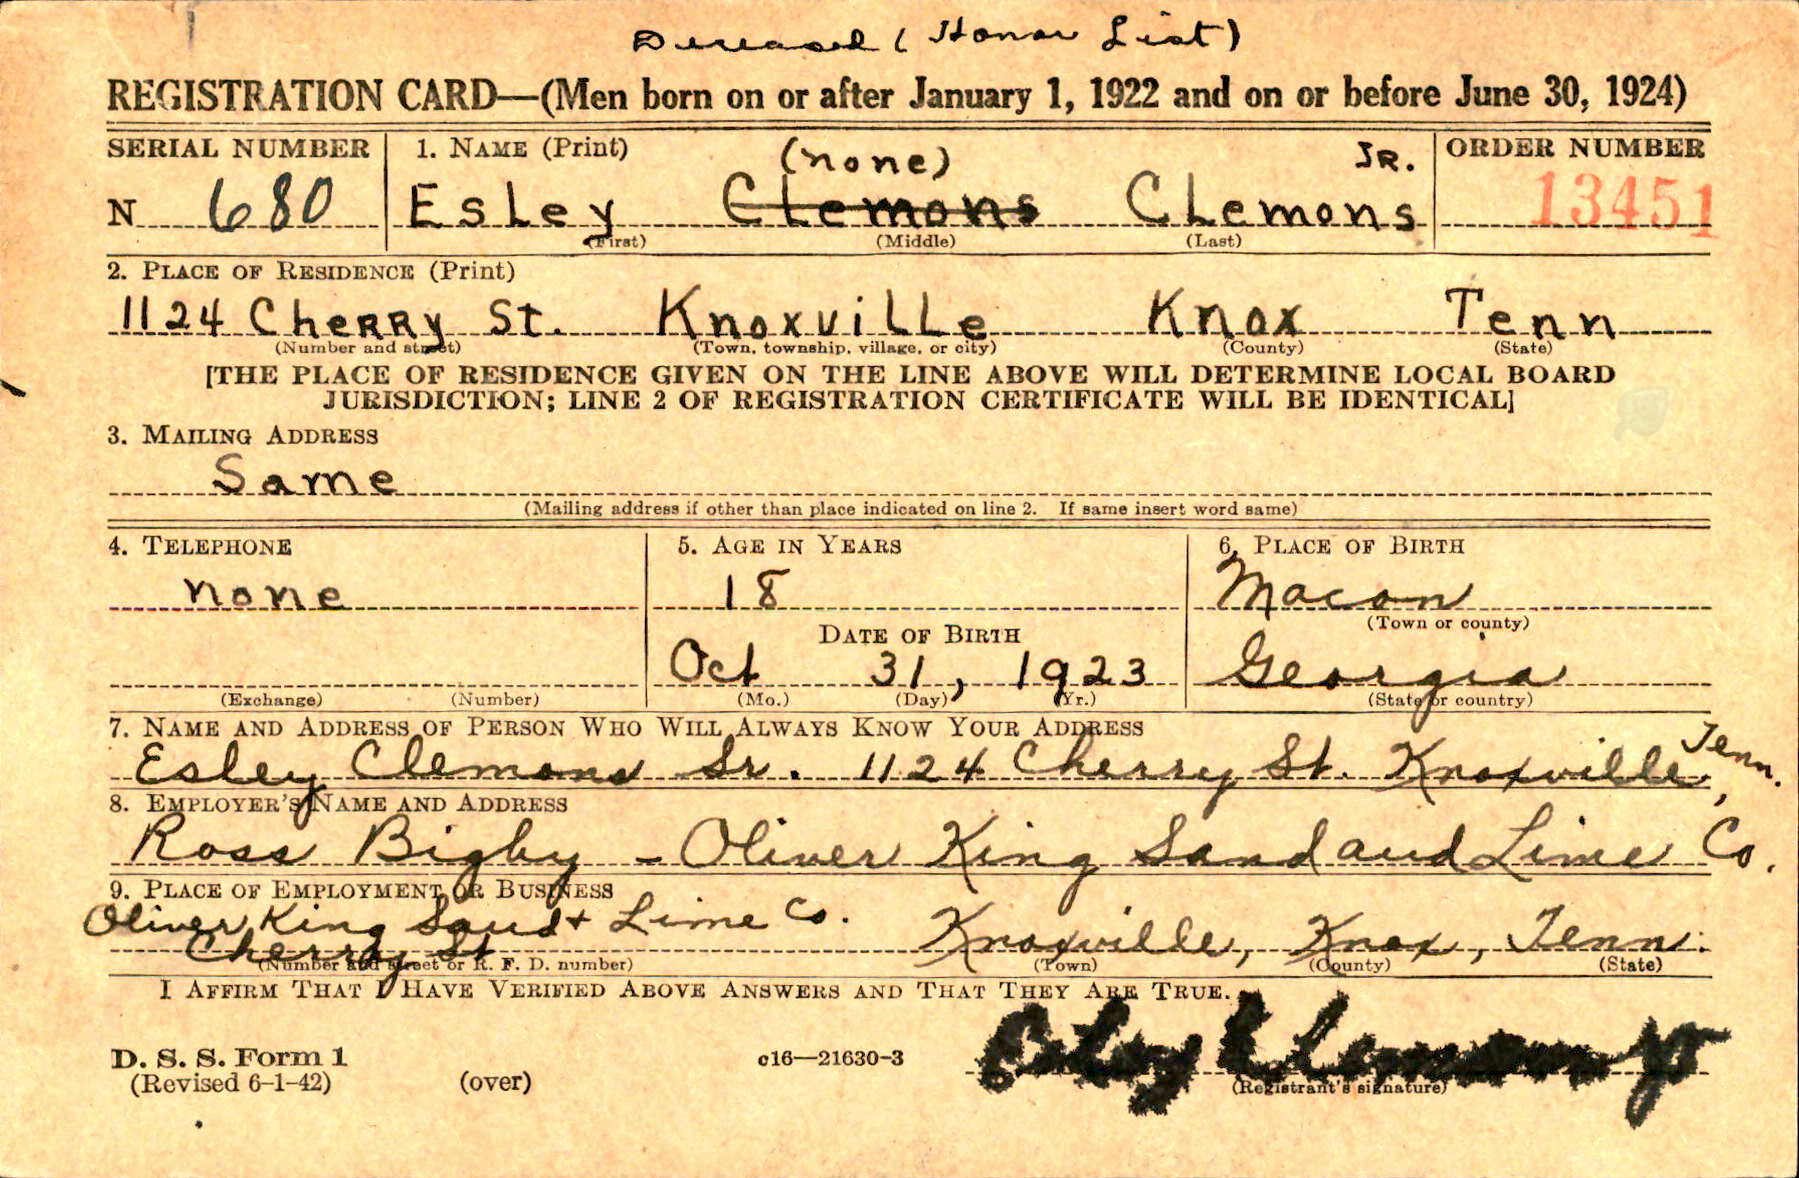 Deceased (Honor List)
REGISTRATION CARD—(Men born on or after January 1, 1922 and on or before June 30, 1924)
SERIAL NUMBER 1. NAME (Print) ORDER NUMBER
(none) JR.
N 680 Esley Clemons Clemons 13451
(First) (Middle) (Last)
2. PLACE OF RESIDENCE (Print)
1124 Cherry St. Knoxville Knox Tenn
(Number and street) (Town, township, village, or city) (County) (State)
[THE PLACE OF RESIDENCE GIVEN ON THE LINE ABOVE WILL DETERMINE LOCAL BOARD
JURISDICTION; LINE 2 OF REGISTRATION CERTIFICATE WILL BE IDENTICAL]
3. MAILING ADDRESS
Same
(Mailing address if other than place indicated on line 2. If same insert word same)
4. TELEPHONE 5. AGE IN YEARS 6. PLACE OF BIRTH
none 18 Macon
(Town or county)
DATE OF BIRTH
Oct 31, 1923 Georgia
(Exchange) (Number) (Mo.) (Day) (Yr.) (State or country)
7. NAME AND ADDRESS OF PERSON WHO WILL ALWAYS KNOW YOUR ADDRESS
Esley Clemons Sr. 1124 Cherry St. Knoxville, Tenn.
8. EMPLOYER'S NAME AND ADDRESS
Ross Bigby - Oliver King Sand and Lime Co.
9. PLACE OF EMPLOYMENT OR BUSINESS
Oliver King Sand + Lime Co.
Cherry St Knoxville, Knox, Tenn.
(Number and street or R. F. D. number) (Town) (County) (State)
I AFFIRM THAT I HAVE VERIFIED ABOVE ANSWERS AND THAT THEY ARE TRUE.
Esley Clemons Jr
D. S. S. Form 1 c16—21630-3
(Revised 6-1-42) (over) (Registrant's signature)